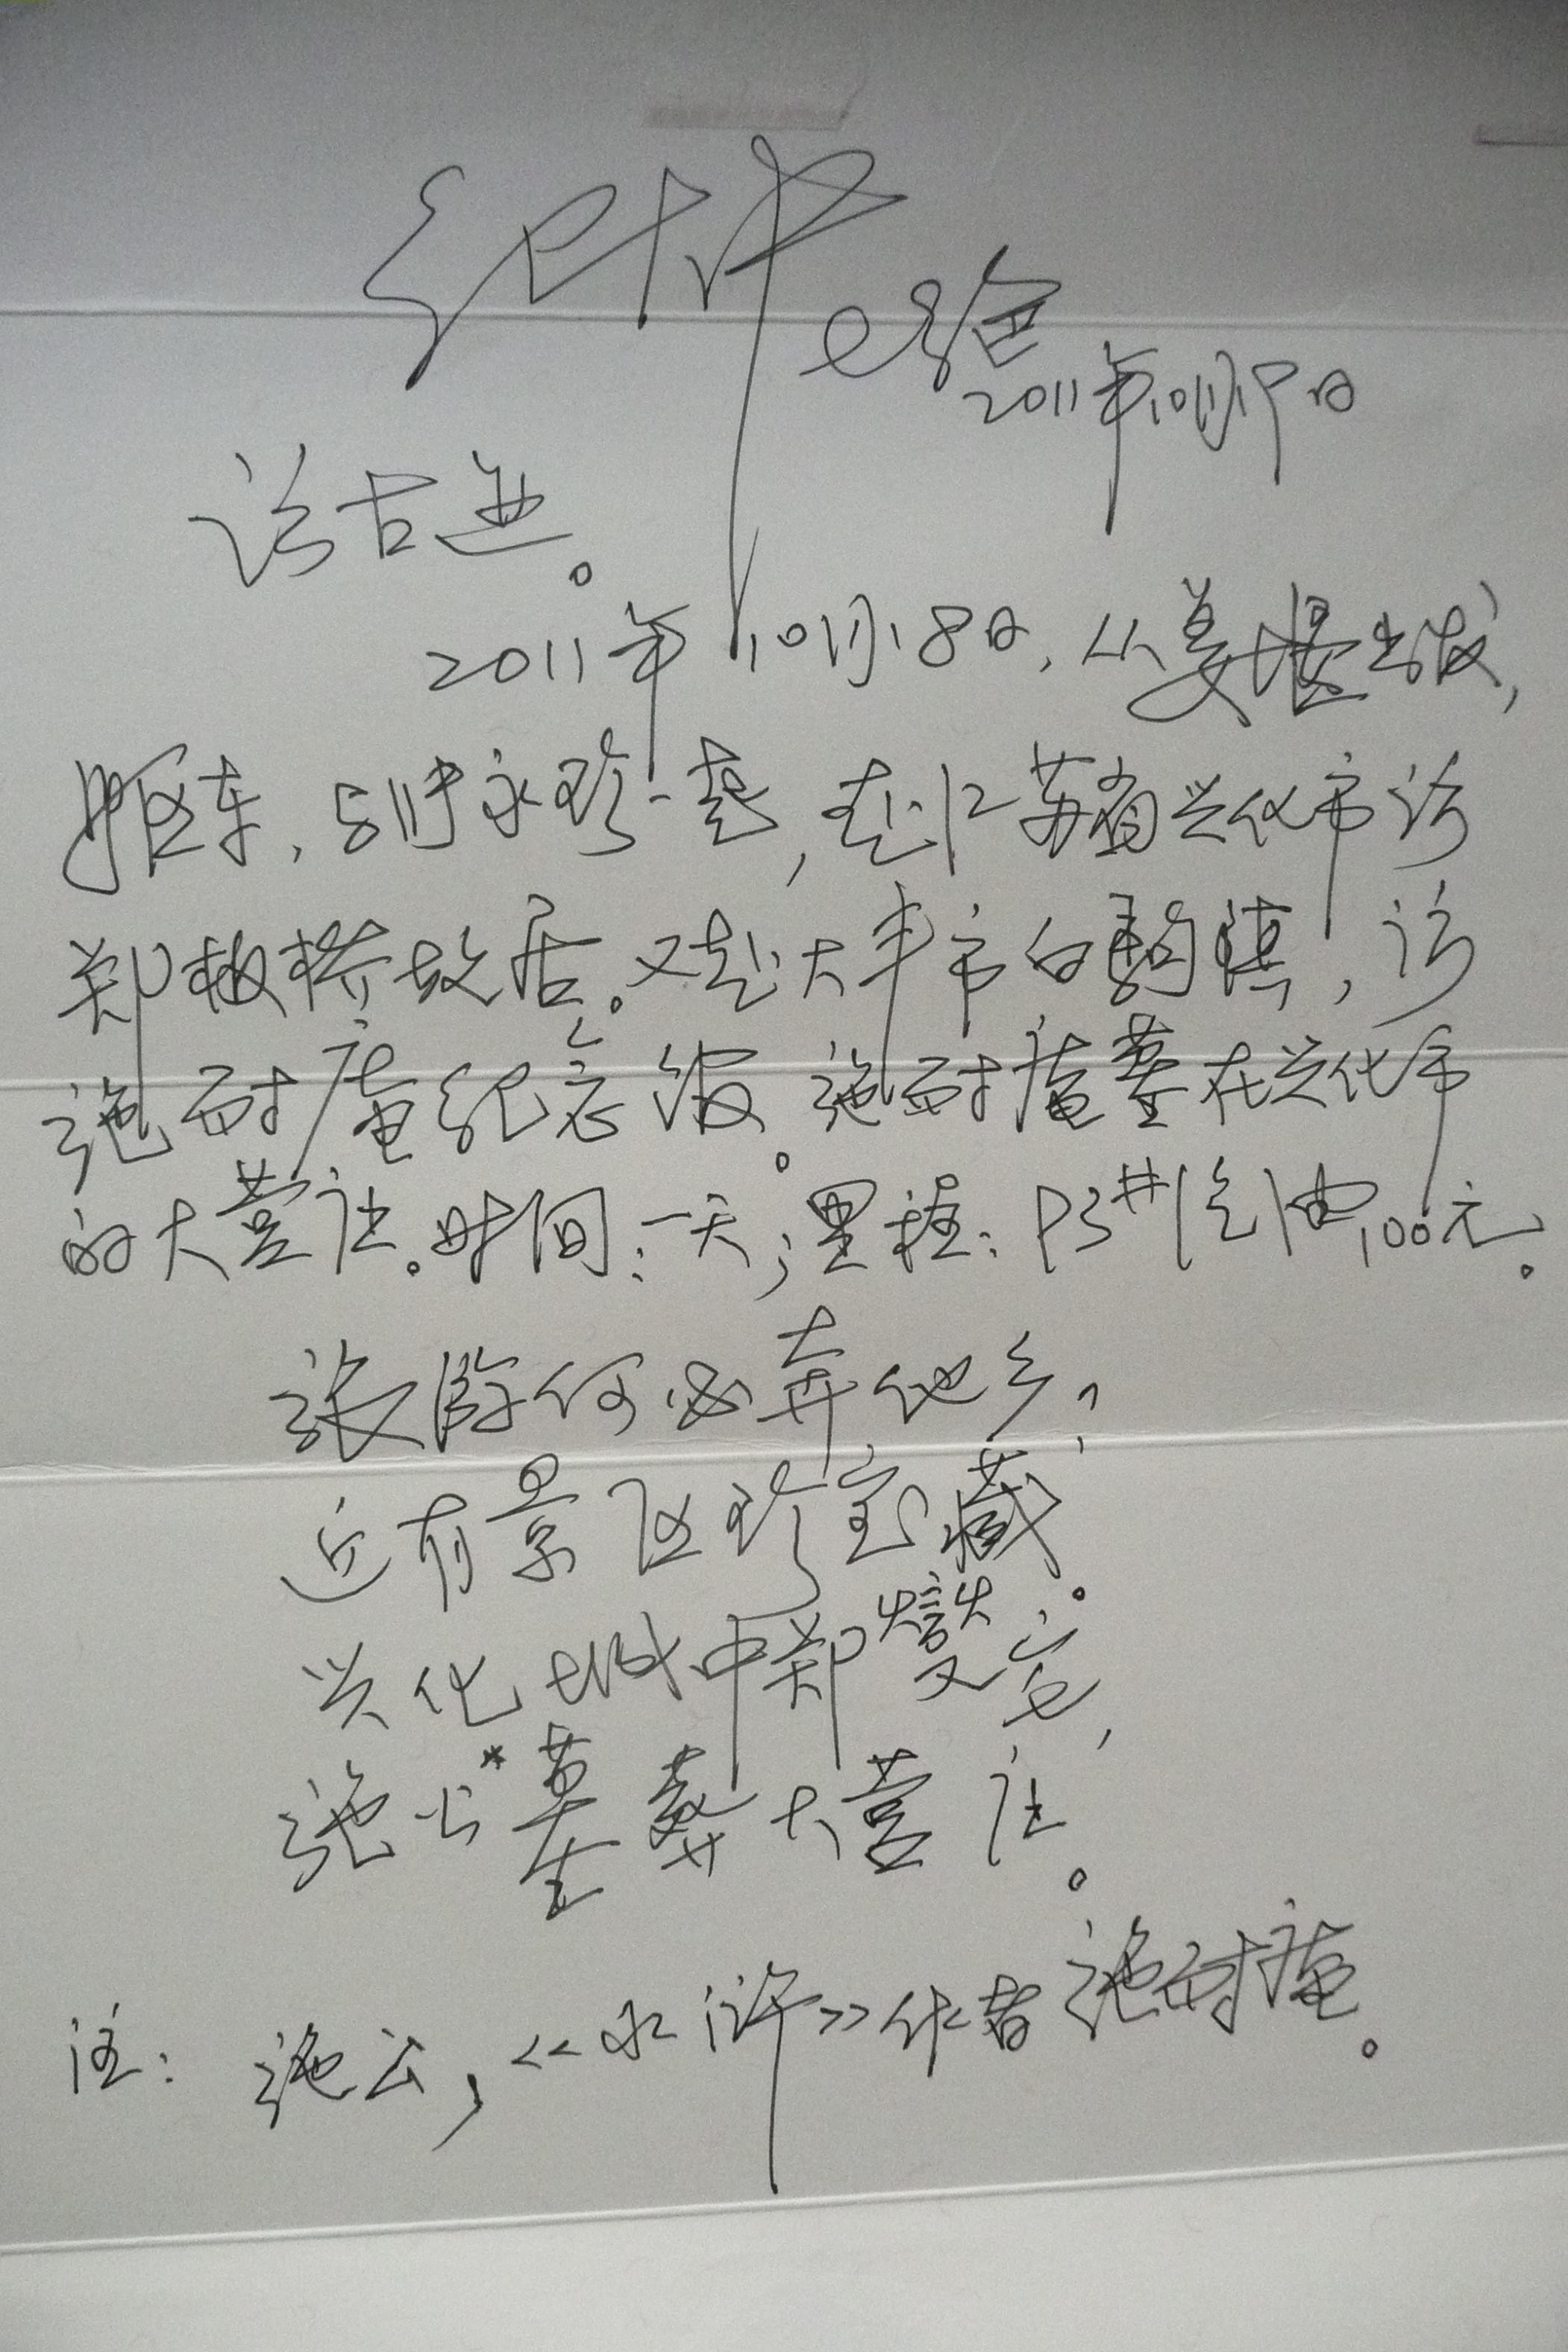 2011年10月19日
访古迹。
2011年10月18日,从姜堰出发,
驱车,与 永珍一起,赴江苏省兴化市访
郑板桥故居。又赴大丰市白驹镇,访
施耐庵纪念馆。施耐庵墓在兴化市
的大营镇。时间:一天;里程:93#汽油100元。
旅游何必奔他乡?
近有景区珍宝藏。
兴化城中郑燮宅,
施公*墓葬大营
注: 施公,《水浒》作者施耐庵。